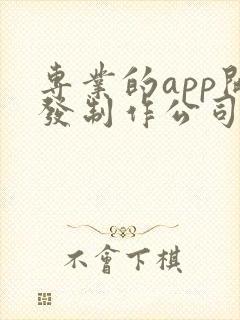 專業的app開
發制作公司
不會下棋